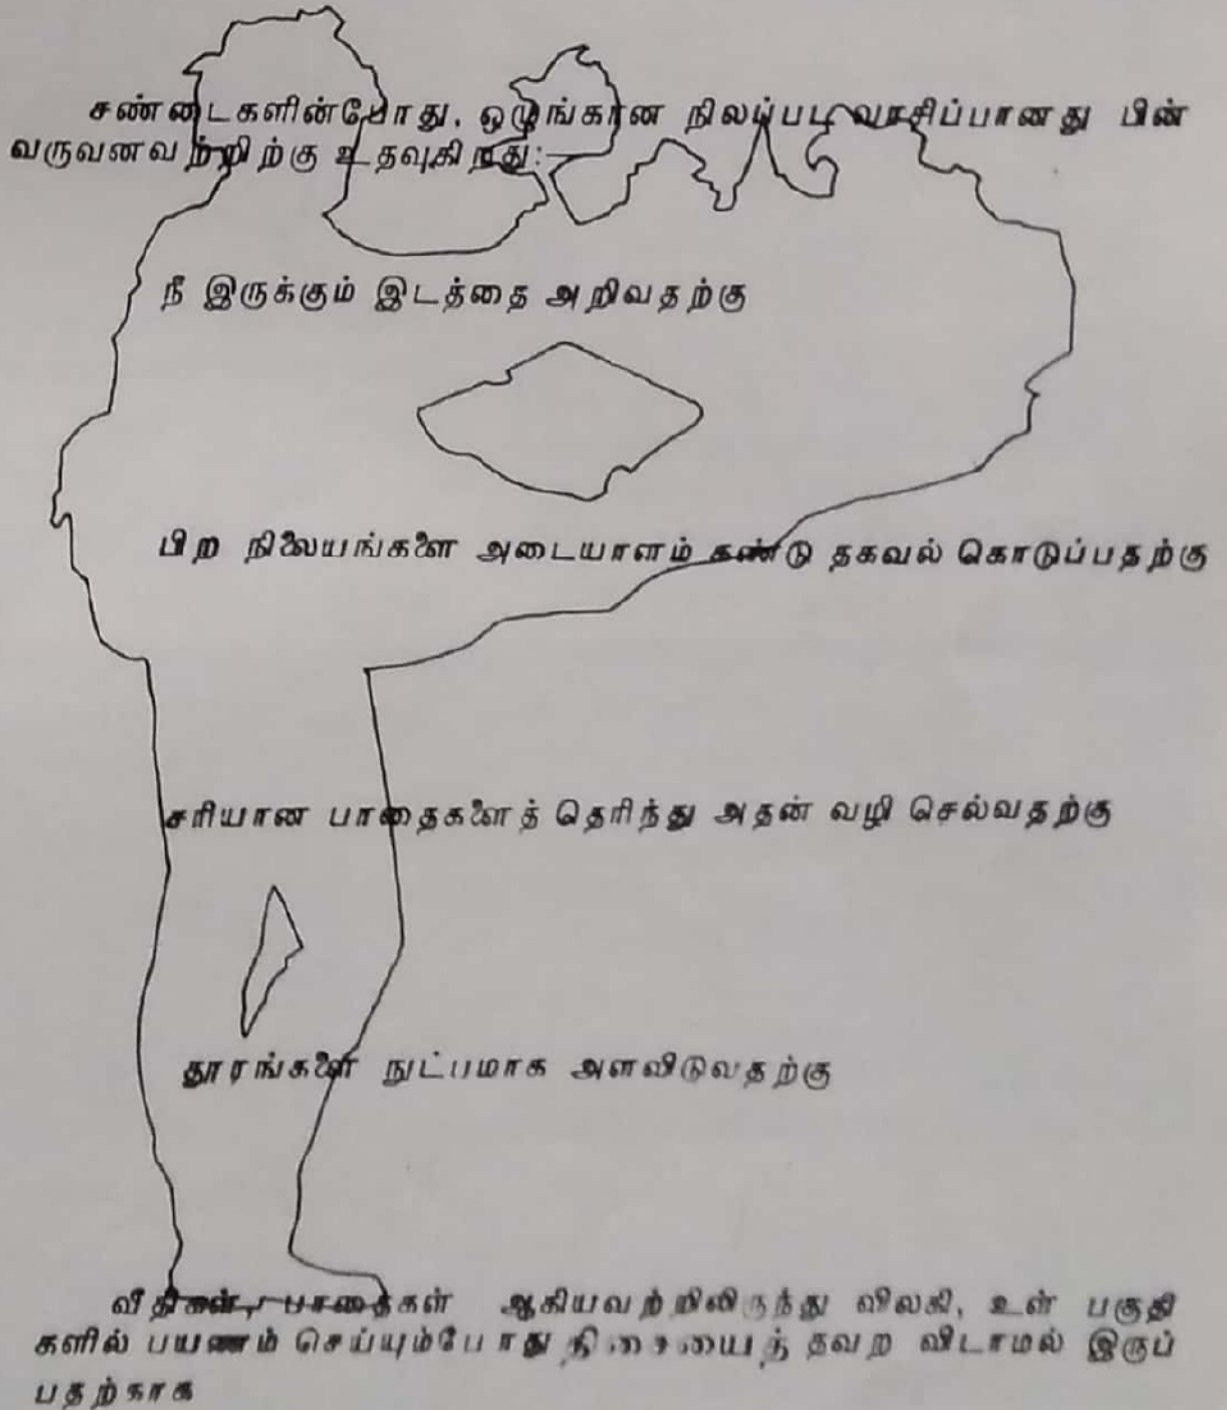 சண்டைகளின்போது, ஒழுங்கான நிலப்பட வாசிப்பானது பின்
வருவனவற்றிற்கு உதவுகிறது:—
நீ இருக்கும் இடத்தை அறிவதற்கு
பிற நிலையங்களை அடையாளம் கண்டு தகவல் கொடுப்பதற்கு
சரியான பாதைகளைத் தெரிந்து அதன் வழி செல்வதற்கு
தூரங்களை நுட்பமாக அளவிடுவதற்கு
வீதிகள், பாதைகள் ஆகியவற்றிலிருந்து விலகி, உள் பகுதி
களில் பயணம் செய்யும்போது திசையைத் தவற விடாமல் இருப்
பதற்காக